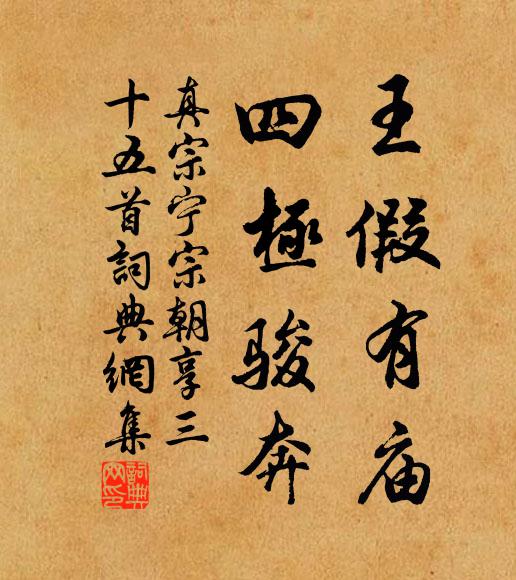 王假有庙
四極骏奔
真宗宁宗朝享三
十五首詞典網集
詞典
网印